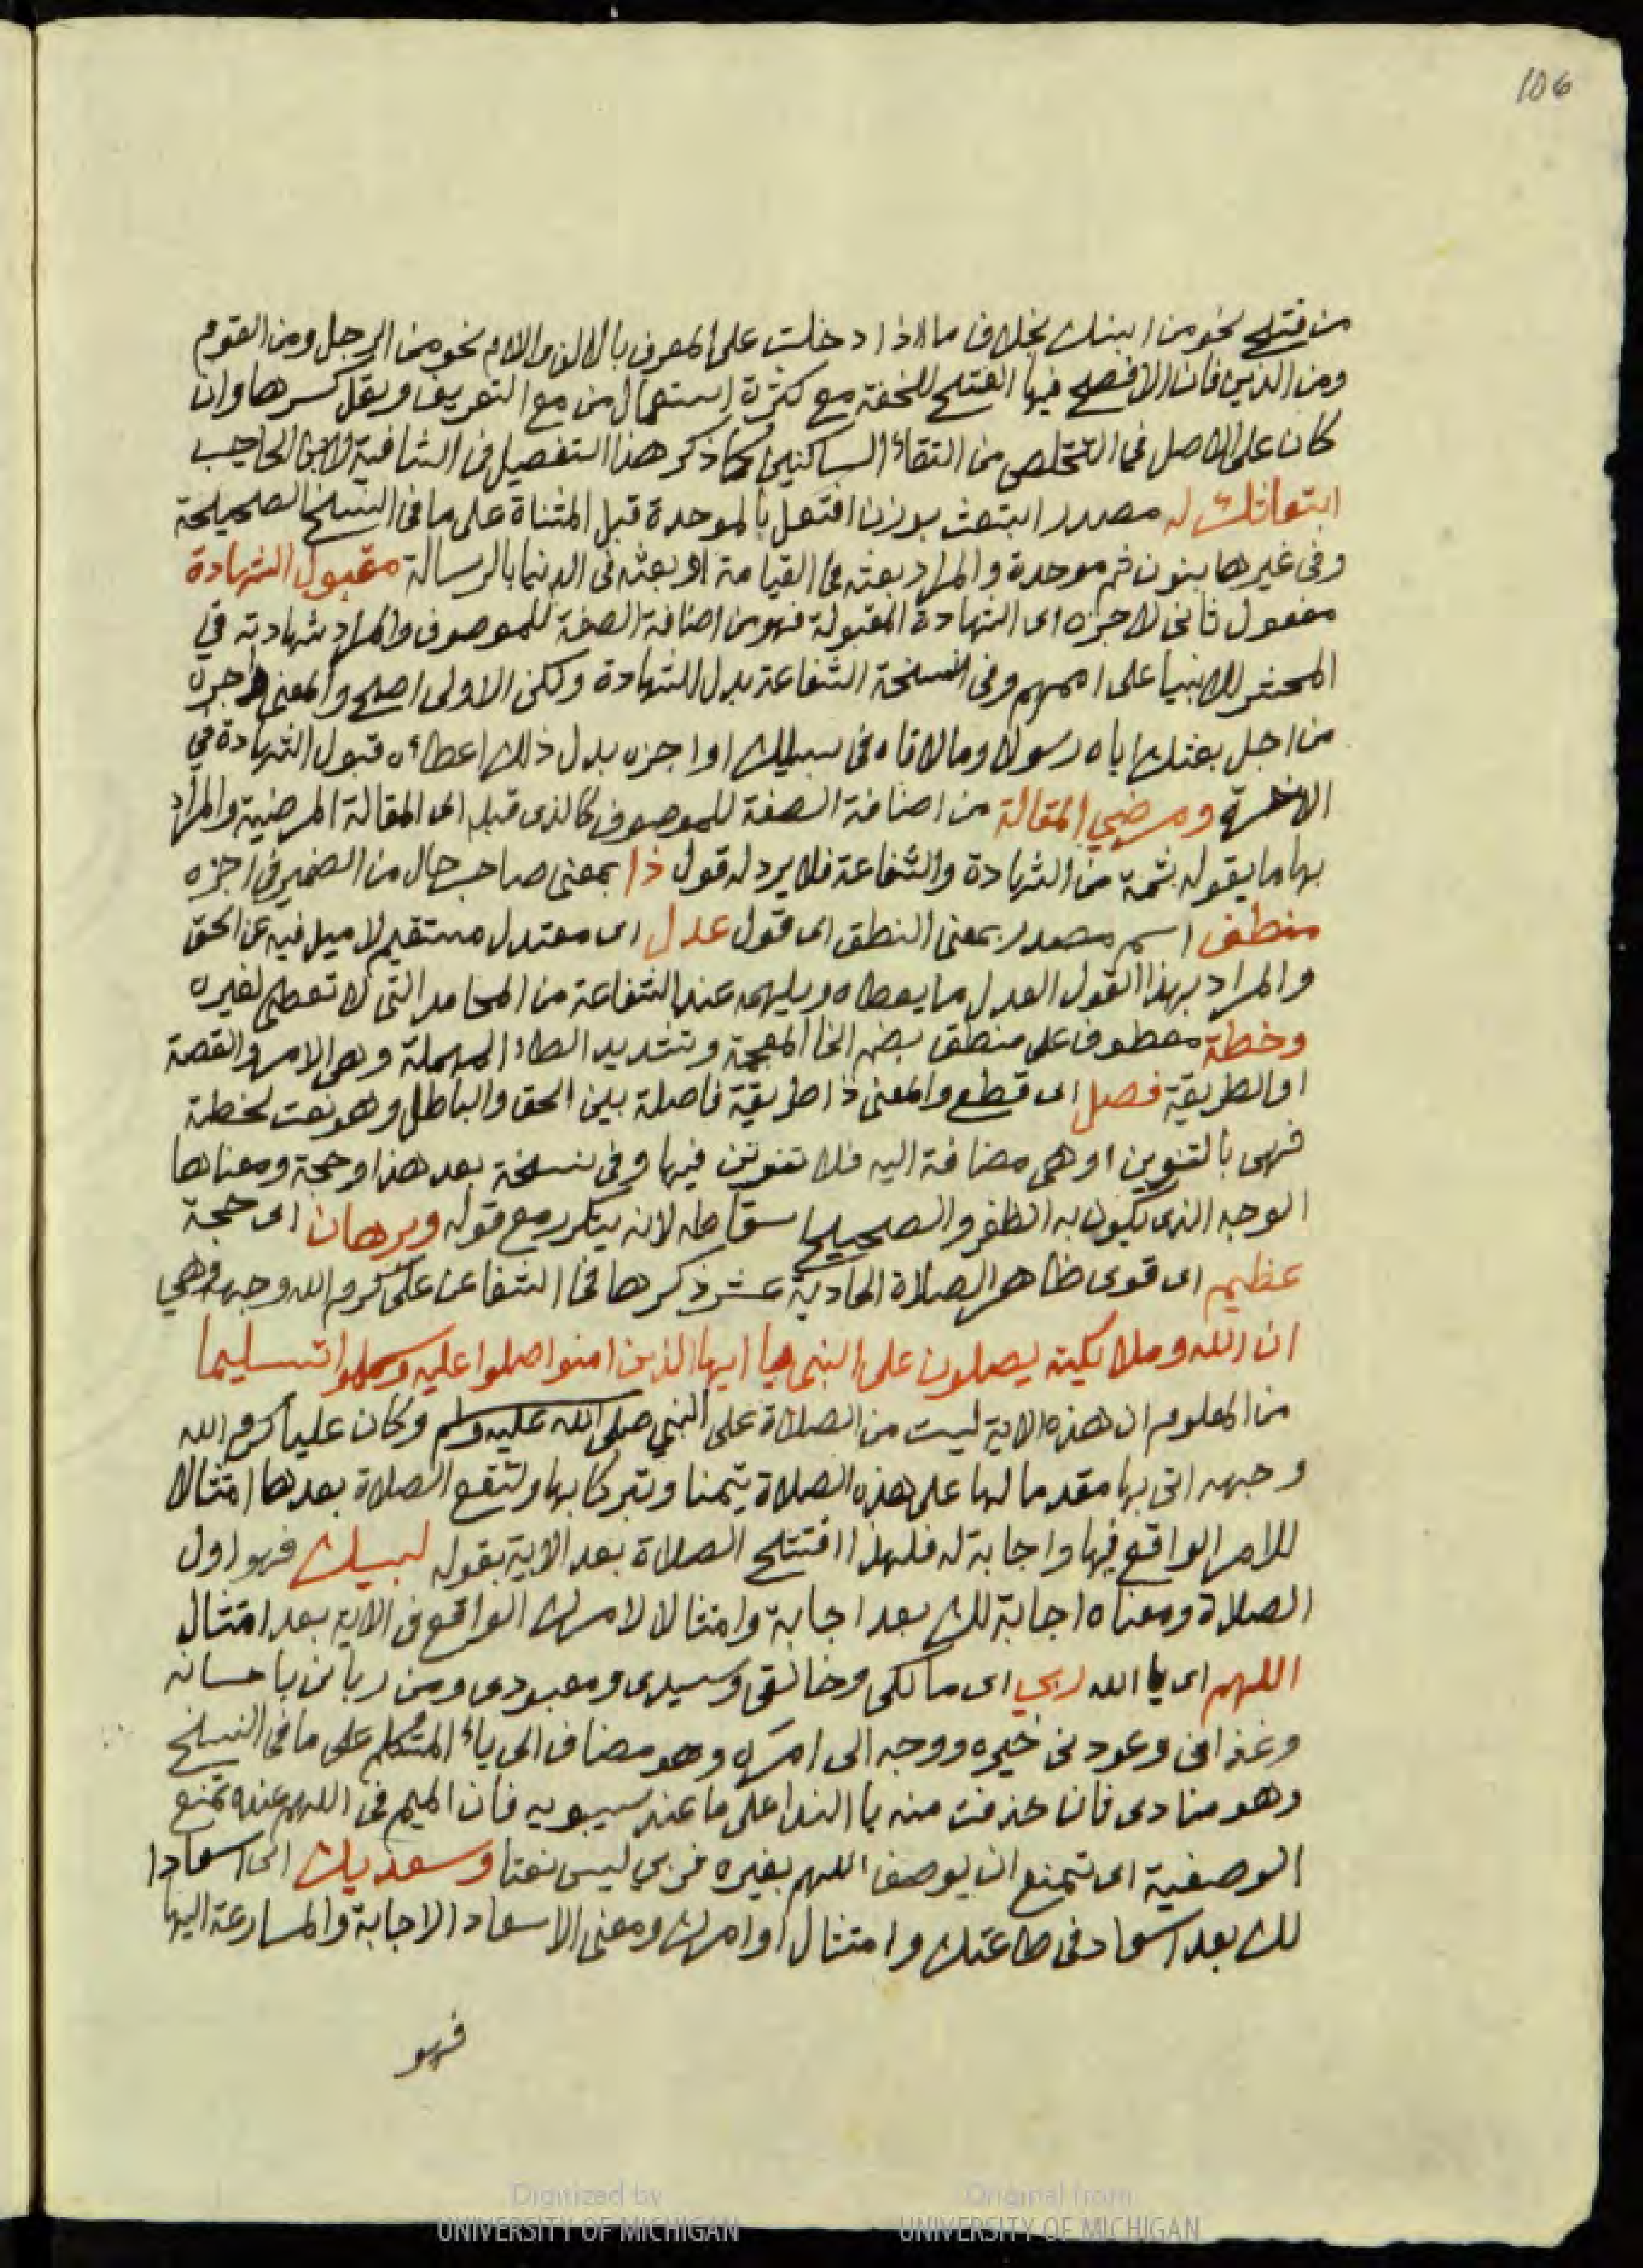 106
من فتح نحو من ابنك بخلاف ما اذا دخلت على المعرف بالالف والام نحو من الرجل ومن القوم
ومن الذين فان الافصح فيها الفتح للخفة مع كثرة استعمال من مع التعريف ويقل كسرها وان
كان على الاصل في التخلص من التقاء الساكنين كما ذكر هذا التفصيل في الشافية لابن الحاجب
ابتعاثك له مصدر ابتعث بوزن افتعل بالموحدة قبل المثناة على ما في النسخ الصحيحة
وفي غيرها بنون ثم موحدة والمراد بعثه في القيامة او بعثه في الدنيا بالرسالة مقبول الشهادة
مفعول ثاني لاجزه اى الشهادة المقبولة فهو من اضافة الصفة للموصوف والمراد شهادته في
المحشر للانبيا على اممهم وفي نسخة الشفاعة بدل الشهادة ولكن الاولى اصح والمعنى اجزه
من اجل بعثك اياه رسولا وما لاقاه في سبيلك او اجزه بدل ذلك اعطاه قبول الشهادة في
الاخرة ومرضي المقالة من اضافة الصفة للموصوف كالذى قبله اى المقالة المرضية والمراد
بها ما يقوله ثمة من الشهادة والشفاعة فلا يرد له قول ذا بمعنى صاحب حال من الضمير في اجزه
منطق اسم مصدر بمعنى النطق اى قول عدل اى معتدل مستقيم لا ميل فيه عن الحق
والمراد بهذا القول العدل ما يعطاه ويلهمه عند الشفاعة من المحامد التي لا تعطى لغيره
وخطة معطوف على منطق بضم الخا المعجمة وتشديد الطاء المهملة وهى الامر والقصة
او الطريقة فصل اى قطع والمعنى ذا طريقة فاصلة بين الحق والباطل وهو نعت لخطة
فهى بالتنوين او هى مضافة اليه فلا تنوين فيها وفي نسخة بعد هذا وحجة ومعناها
الوجه الذى يكون به الظفر والصحيح اسقاطه لانه يتكرر مع قوله وبرهان اى حجة
عظيم اى قوى ظاهر الصلاة الحادية عشر ذكرها في الشفا عن على كرم الله وجهه وهي
ان الله وملائكته يصلون على النبي يا ايها الذين امنوا صلوا عليه وسلموا تسليما
من المعلوم ان هذه الاية ليست من الصلاة على النبي صلى الله عليه وسلم وكان عليا كرم الله
وجهه اتى بها مقدما لها على هذه الصلاة تيمنا وتبركا بها ولتقع الصلاة بعدها امتثالا
للامر الواقع فيها واجابة له فلهذا افتتح الصلاة بعد الاية بقوله لبيك فهو اول
الصلاة ومعناه اجابة لك بعد اجابة وامتثالا لامرك الواقع في الاية بعد امتثال
اللهم اى يا الله ربي اى مالكى وخالقى وسيدى ومعبودى ومن رباني باحسانه
وغذاني وعودني خيره ووجه الى امره وهو مضاف الى ياء المتكلم على ما في النسخ
وهو منادى ثان حذفت منه يا الندا على ما عند سيبويه فان الميم في اللهم عنده تمنع
الوصفية اى تمنع ان يوصف اللهم بغيره فربي ليس نعتا وسعديك اى اسعادا
لك بعد اسعاد في طاعتك وامتثال اوامرك ومعنى الاسعاد الاجابة والمسارعة اليها
فهو
Digitized by
UNIVERSITY OF MICHIGAN
Original from
UNIVERSITY OF MICHIGAN